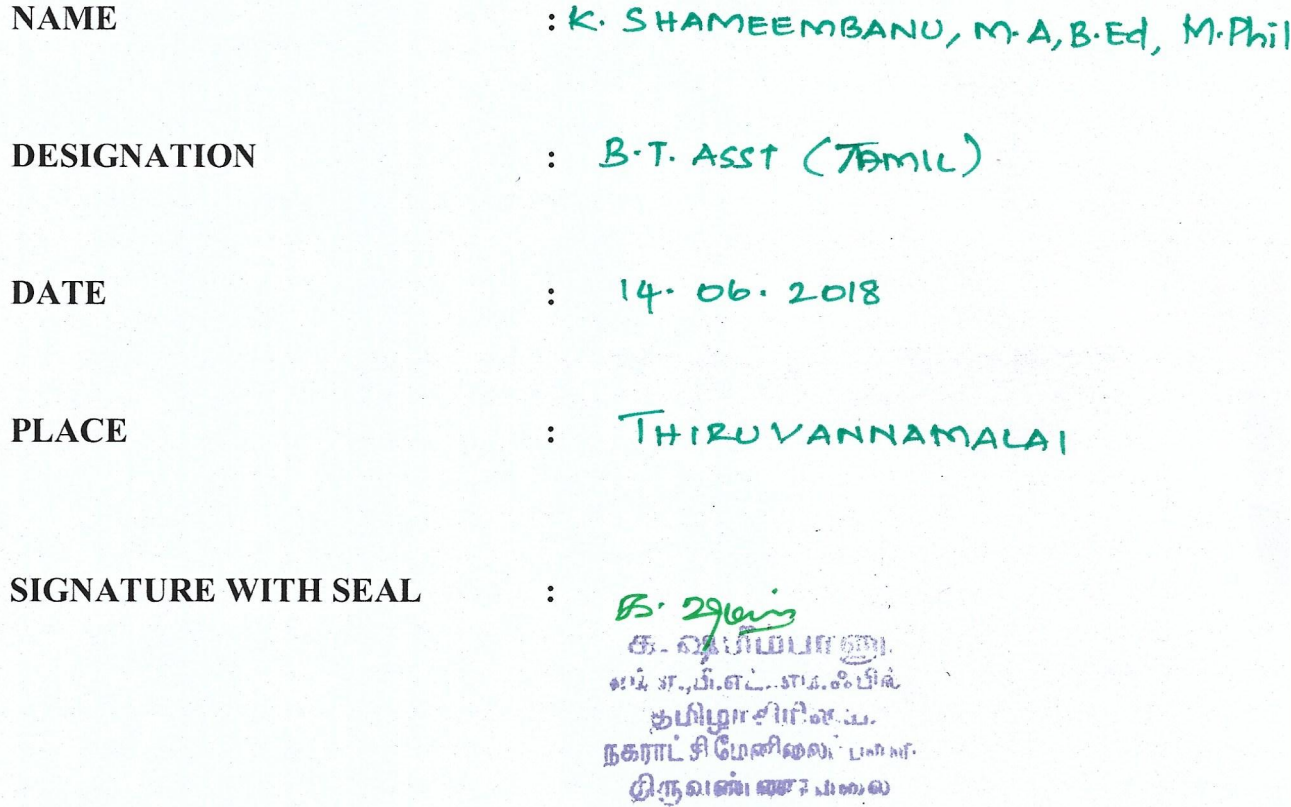 NAME : K. SHAMEEMBANU, M.A, B.Ed, M.Phil
DESIGNATION : B.T. ASST (TAMIL)
DATE : 14.06.2018
PLACE : THIRUVANNAMALAI
SIGNATURE WITH SEAL : க.
க. ஷமீம்பானு.
எம்.ஏ.,பி.எட்.,எம்.ஃபில்
தமிழாசிரியை
நகராட்சி மேனிலைப்
திருவண்ணாமலை